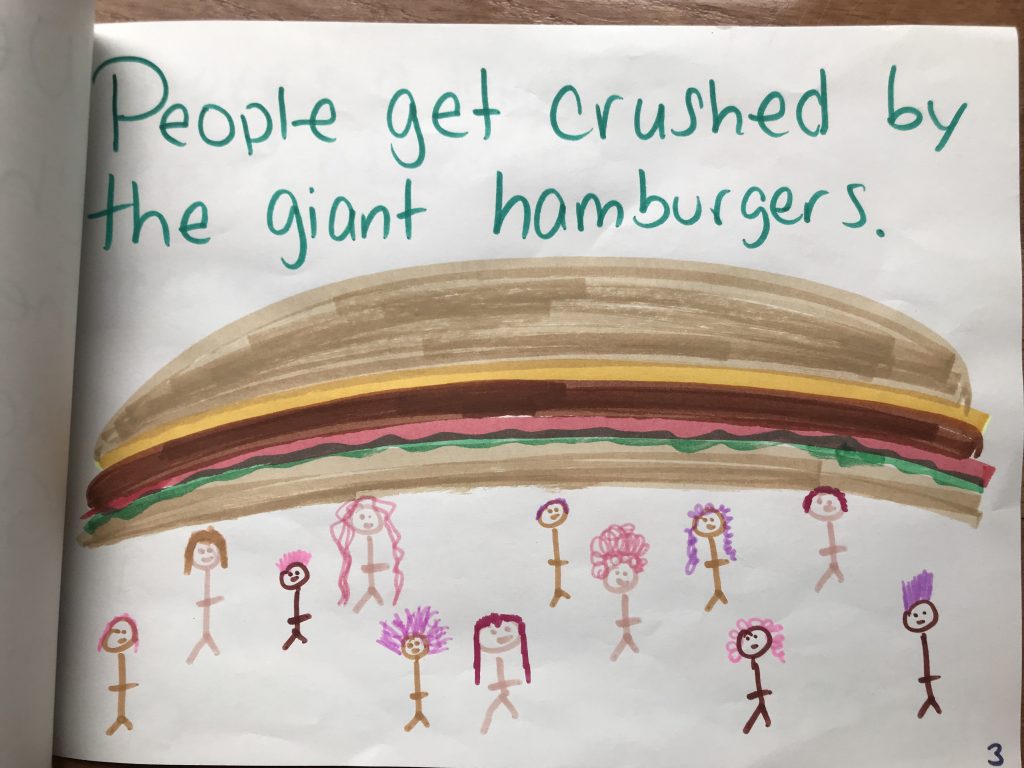 People get crushed by
the giant hamburgers.
3